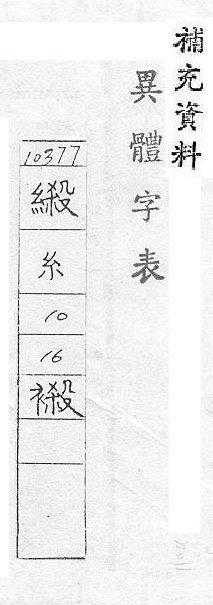 補充資料
異體字表
10377
糸
10
16